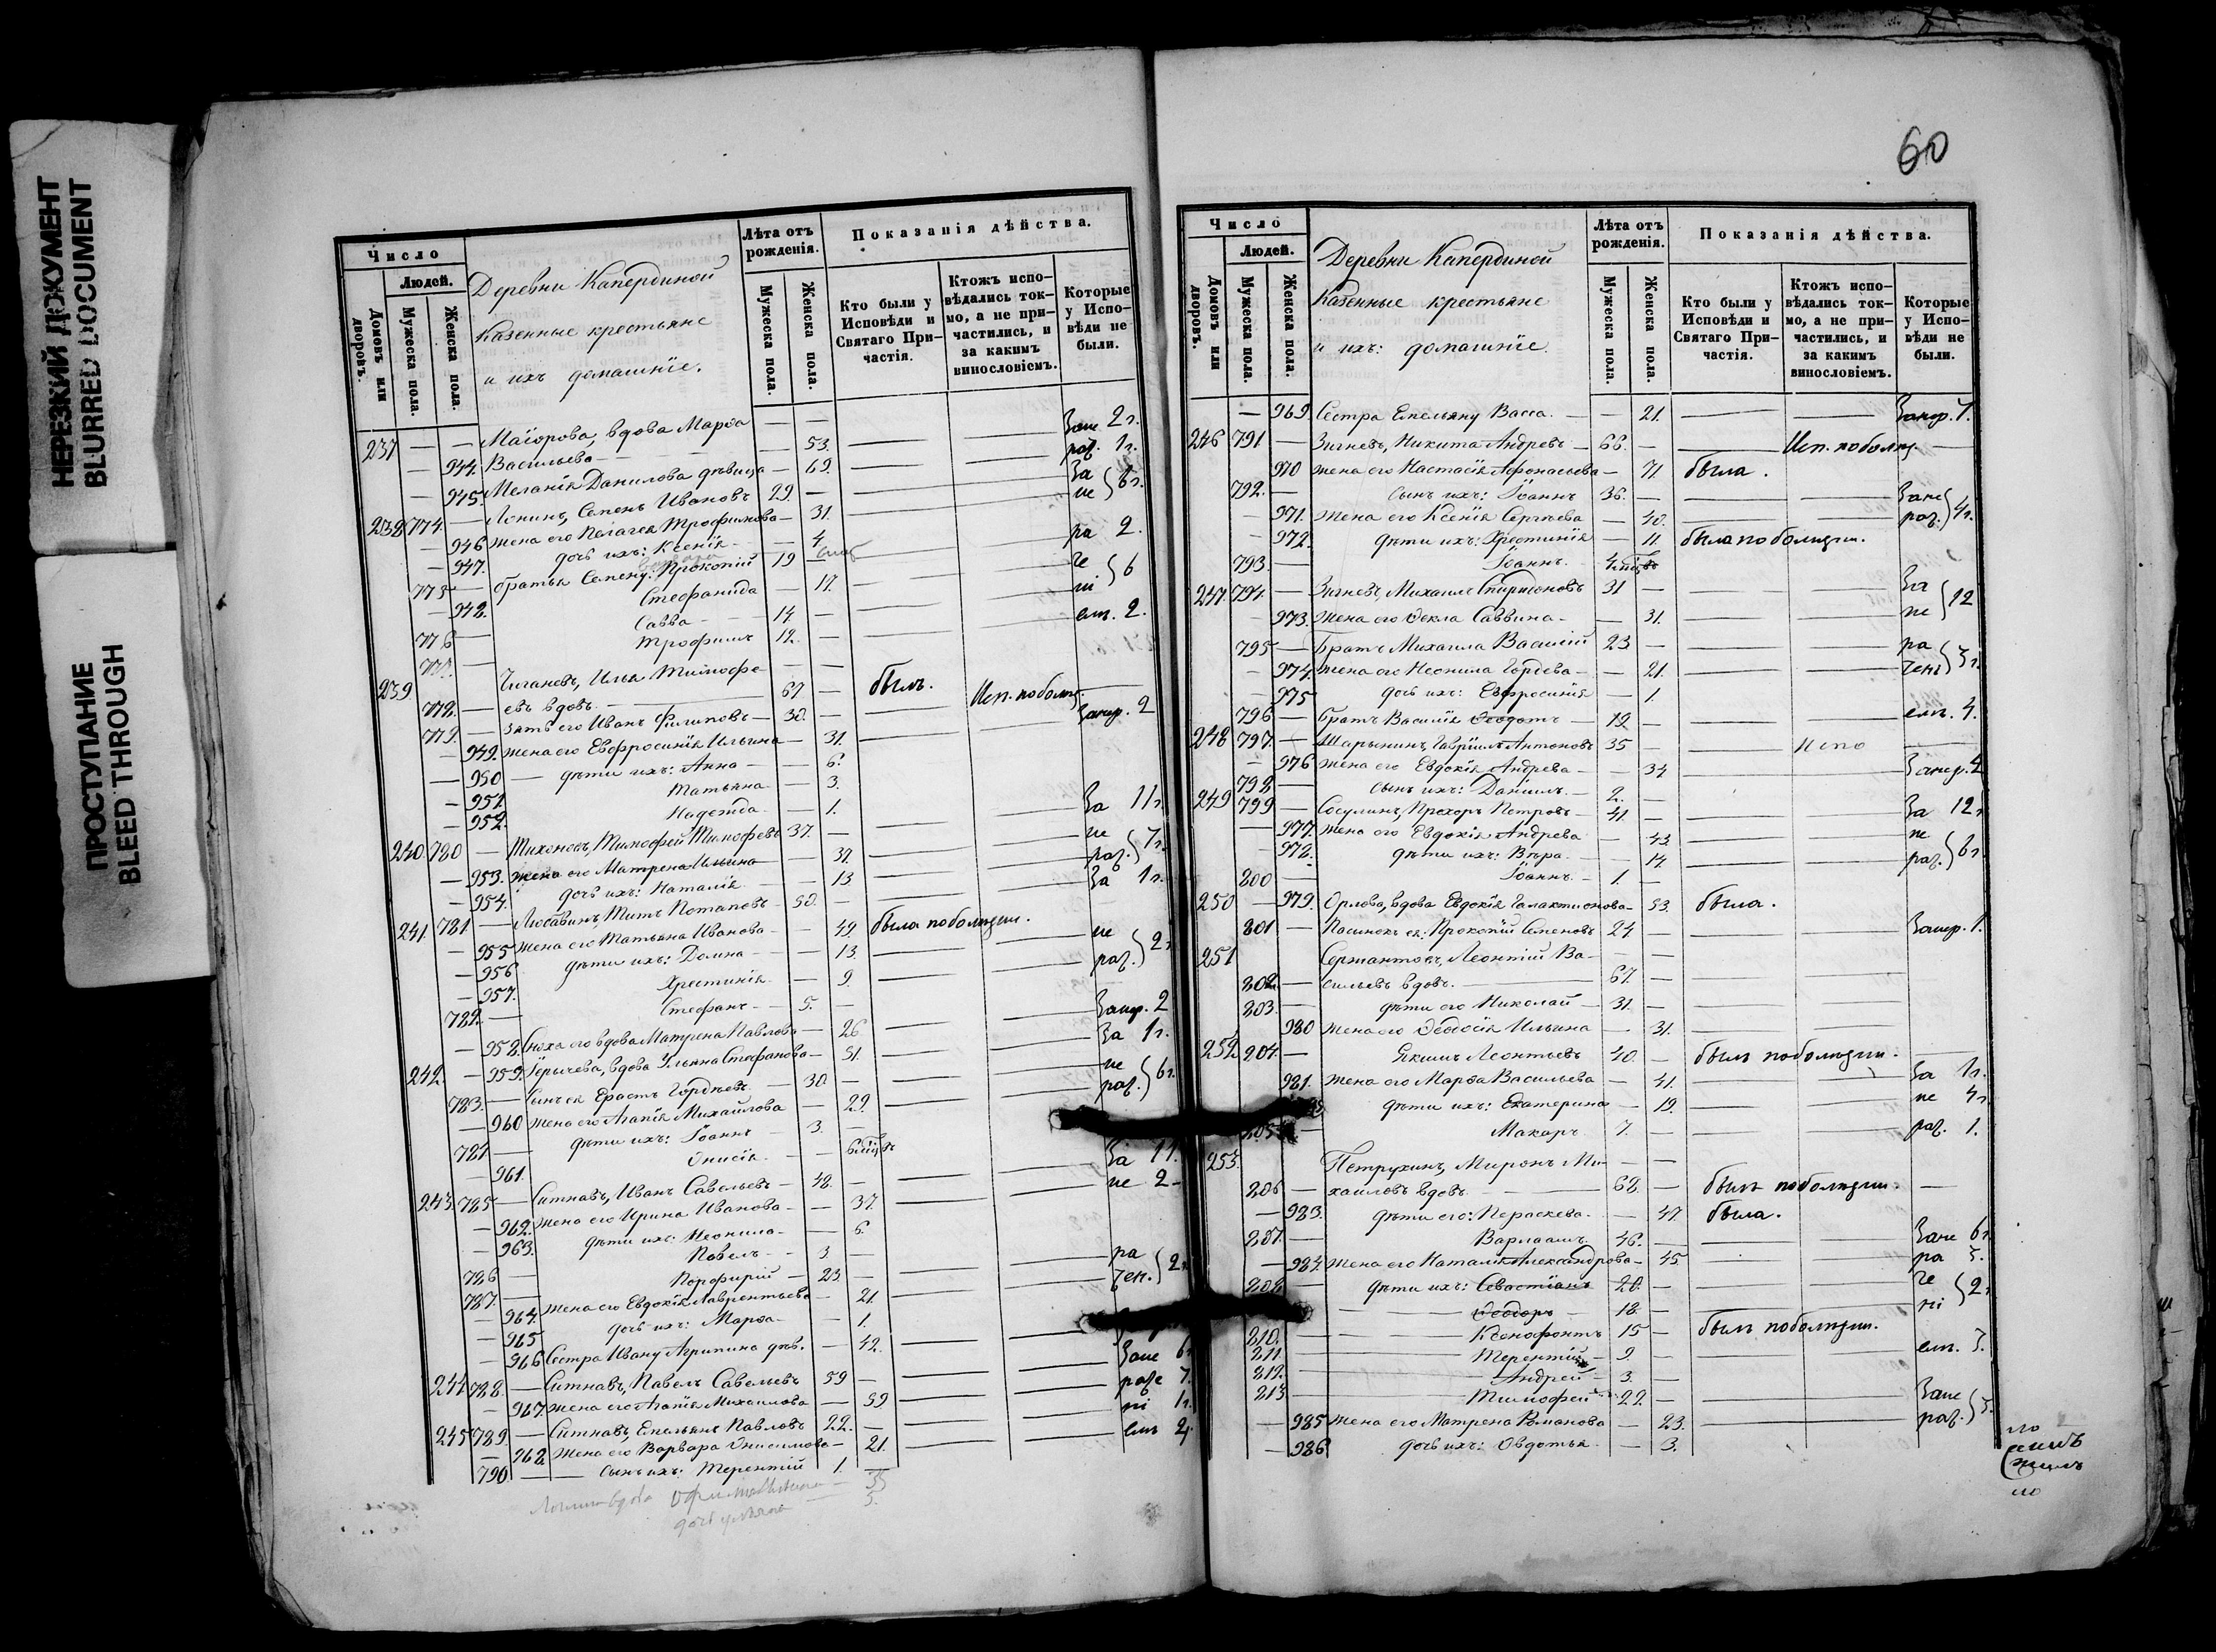 НЕРЕЗКИЙ ДОКУМЕНТ
BLURRED DOCUMENT
ПРОСТУПАНИЕ
BLEED THROUGH
Число
Людей.
Домовъ или дворовъ.
Мужеска пола.
Женска пола.
Деревни Капердиной
Казенные крестьяне
и ихъ домашніе.
Лѣта отъ рожденія.
Мужеска пола.
Женска пола.
Показанія дѣйства.
Кто были у Исповѣди и Святаго При-частія.
Ктожъ испо-вѣдались ток-мо, а не при-частились, и за какимъ винословіемъ.
Которые у Испо-вѣди не были.
237 — — Маіорова, вдова Марѳа — —
— 944. Васильева — 53. Зане 2 г.
— 945. Меланія Данилова дѣвица — 69. раз. 1 г.
238 774. — Лонинъ, Семенъ Ивановъ 29. — За не 6 г.
— 946 жена его Пелагея Трофимова — 31.
— 947. дочь ихъ: Ксенія — 4. ра 2.
775 — братья Семену: Прокопій 19 —
— 948. Стефанида — 17. че ні 6
776 — Савва — 14 —
777. — Трофимъ 12. — емъ. 2.
239 Чиганевъ, Илья Тимофе — —
778. — евъ вдовъ. 67 — былъ.
779. — Зять его Иванъ Филиповъ — 30. — Исп. по болѣз.
— 949. жена его Евфросинія Ильина — 31. Зачер. 2
— 950 — дѣти ихъ: Анна — — 6.
— 951. Татьяна — 3.
— 952. Надежда — 1.
240 780 — Тихоновъ, Тимофей Тимофевъ 37. — За 11 г.
— 953. жена его Матрена Ильина — 37. не раз. 7 г.
— 954. дочь ихъ: Наталія — 13
241. 781 — Любавинъ, Титъ Потаповъ — 50. — За 1 г.
— 955 жена его Татьяна Иванова — — 49. была по болѣзни.
— 956 дѣти ихъ: Домна — — 13. не раз. 2 г.
— 957. Христинія — 9.
782. — Стефанъ — 5. —
— 958. Сноха его вдова Матрена Павлова — 26 Зачер. 2
242. — 959. Горычева, вдова Ульяна Стефанова — 51. За 1 г.
783. — Сынъ ея Ерастъ Гордѣевъ — 30. — не раз. 6 г.
— 960 жена его Агапія Михайлова — 29.
784 — дѣти ихъ: Іоаннъ — 3. —
— 961. Онисія — — 6 мѣс.
243. 785 — Ситнавъ, Иванъ Савельевъ — 48. — За 11.
— 962. жена его Ирина Иванова — — 37. не 2 —
— 963. дѣти ихъ: Неонила — — 6.
786 — Павелъ — 3 —
787. — Порфирій — 23. — ра чен. 2
— 964. жена его Евдокія Лаврентьева — 21.
— 965 дочь ихъ: Марѳа — — 1.
— 966 Сестра Ивану Агрипина дѣв. — 42.
244 788. — Ситнавъ, Павелъ Савельевъ 59 — Зане 6
— 967. жена его Агапія Михаилова — 59 разе 7.
245 789. — Ситнавъ, Емельянъ Павловъ 22. — ні 1 г.
— 968. жена его Варвара Онисимова — 21. емъ 2
790. — — сынъ ихъ: Терентій 1. —
вдова 35
дочь 5.
60
Число
Людей.
Домовъ или дворовъ.
Мужеска пола.
Женска пола.
Деревни Капердиной
Казенные крестьяне
и ихъ: домашніе.
Лѣта отъ рожденія.
Мужеска пола.
Женска пола.
Показанія дѣйства.
Кто были у Исповѣди и Святаго При-частія.
Ктожъ испо-вѣдались ток-мо, а не при-частились, и за какимъ винословіемъ.
Которые у Испо-вѣди не были.
— 969. Сестра Емельяну Васса. — — 21. Зачер. 1.
246 791 — Зигневъ, Никита Андревъ — 68. — Исп. по болѣз. —
970 жена его Настасія Афонасьева — 71. была.
792. — сынъ ихъ: Іоаннъ 36. — Зане
— 971. жена его Ксенія Сергѣева — 40. раз. 4 г.
— 972. дѣти ихъ: Христинія — 11 была по болѣзни.
793 — Іоаннъ. 4 мѣс.
247 794. — Зигневъ, Михаилъ Спиридоновъ 31 — За
— 973. жена его Ѳекла Саввина — — 31. не 12
795 — Братъ Михаила Василій 23 — ра
— 974. жена его Неонила Гордева — — 21. чені 3 г.
— 975 дочь ихъ: Евфросинія — 1.
796 — Братъ Василія Ѳеодотъ — 19. — емъ. 4.
248 797. — Шарынинъ, Гавріилъ Антоновъ 35 — Испо
— 976 жена его Евдокія Андрева — — 34 Зачер. 4
798 — сынъ ихъ: Даніилъ. — 2. —
249 799 — Сосулинъ, Прохоръ Петровъ — 41 — За 12 г
— 977. жена его Евдокія Андрева — 43. не
— 978. дѣти ихъ: Вѣра. — — 14 раз. 6 г.
800 — Іоаннъ. — 1. —
250 — 979. Орлова, вдова Евдокія Галактионова — 53. была.
801 — Пасынокъ ея: Прокопій Семеновъ 24 — Зачер. 1.
251 Сержантовъ, Леонтій Ва- — —
802. — сильевъ вдовъ. — 67. —
803. — дѣти его Николай — 31. —
980 жена его Ѳеодосія Ильина — 31.
252 804. — Якимъ Леонтьевъ 40. — былъ по болѣзни.
981. жена его Марѳа Васильева — 41. За 1 г.
дѣти ихъ: Екатерина — 19. не 4 г
805 — Макаръ 7. — раз. 1.
253. Петрухинъ, Миронъ Ми- — —
806 — хаиловъ вдовъ. — 68. — былъ по болѣзни. —
— 983. дѣти его: Пераскева. — 47. была.
807. — Варлаамъ. 46. — Зане 6 г.
— 984. жена его Наталія Александрова — 45. ра 3.
808. дѣти ихъ: Севастіанъ 20. — че
Ѳеодоръ — 18. — ні 2 г.
810. — Ксенофонтъ 15 — былъ по болѣзни.
811 — Терентій — 9. — емъ. 3.
812. — Андрей — 3. —
813 — Тимофей — 22. — Зане
— 985 жена его Матрена Романова — 23. раз. 3.
— 986 дочь ихъ: Овдотья. — 3.